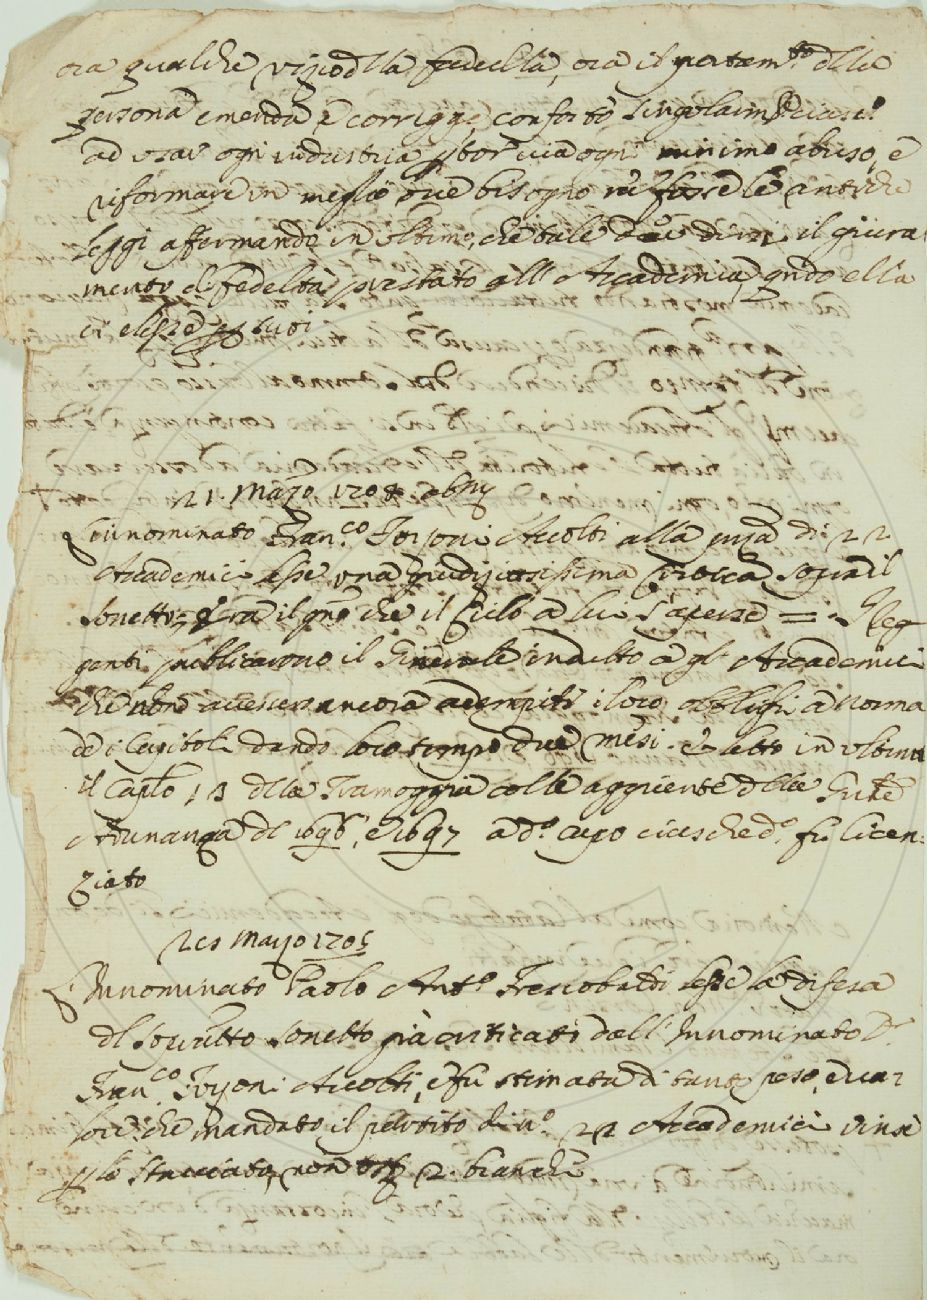 ora qualche vizio della fedeltà, ora il portam.to della
persona emenda e corregge, confortò singolarm.te ciascun.o
ad usar ogni industria p tor via ogni minimo abuso, e
riformare in meglio ove bisogno ne fosse le antiche
leggi affermando in ultimo, che tale deve dirsi il giura
mento di fedeltà prestato all'Accademia, qndo ella
ci elesse p suoi
21. Marzo 1704
L'Innominato Fran.co Forzoni Accolti alla pnza di 22
Accademici lesse una giudiziosissima Critica, sopra il
sonetto = Era il gno che il Cielo a lui s'aperse = Reg
genti publicarono il Generale indulto a gl'Accademici
che non avessero ancora adempiti i loro obblighi a norma
de i Capitoli dando loro tempo due mesi. E letto in ultimo
il Caplo 13 della Tramoggia colle aggiunte delle Gnli
Adunanza del 1696, e 1697 a d.o capo ciasched.o fu licen:
ziato
Marzo 1705
L'Innominato Paolo Ant.o Frescobaldi lesse la difesa
del scritto sonetto già criticato dall'Innominato
Fran.co Forzoni Accolti, e fu stimata di tanto peso, e va:
lore che mandato il partito di n.o 22 Accademici vinse
p lo stacciato, non 2. bianche